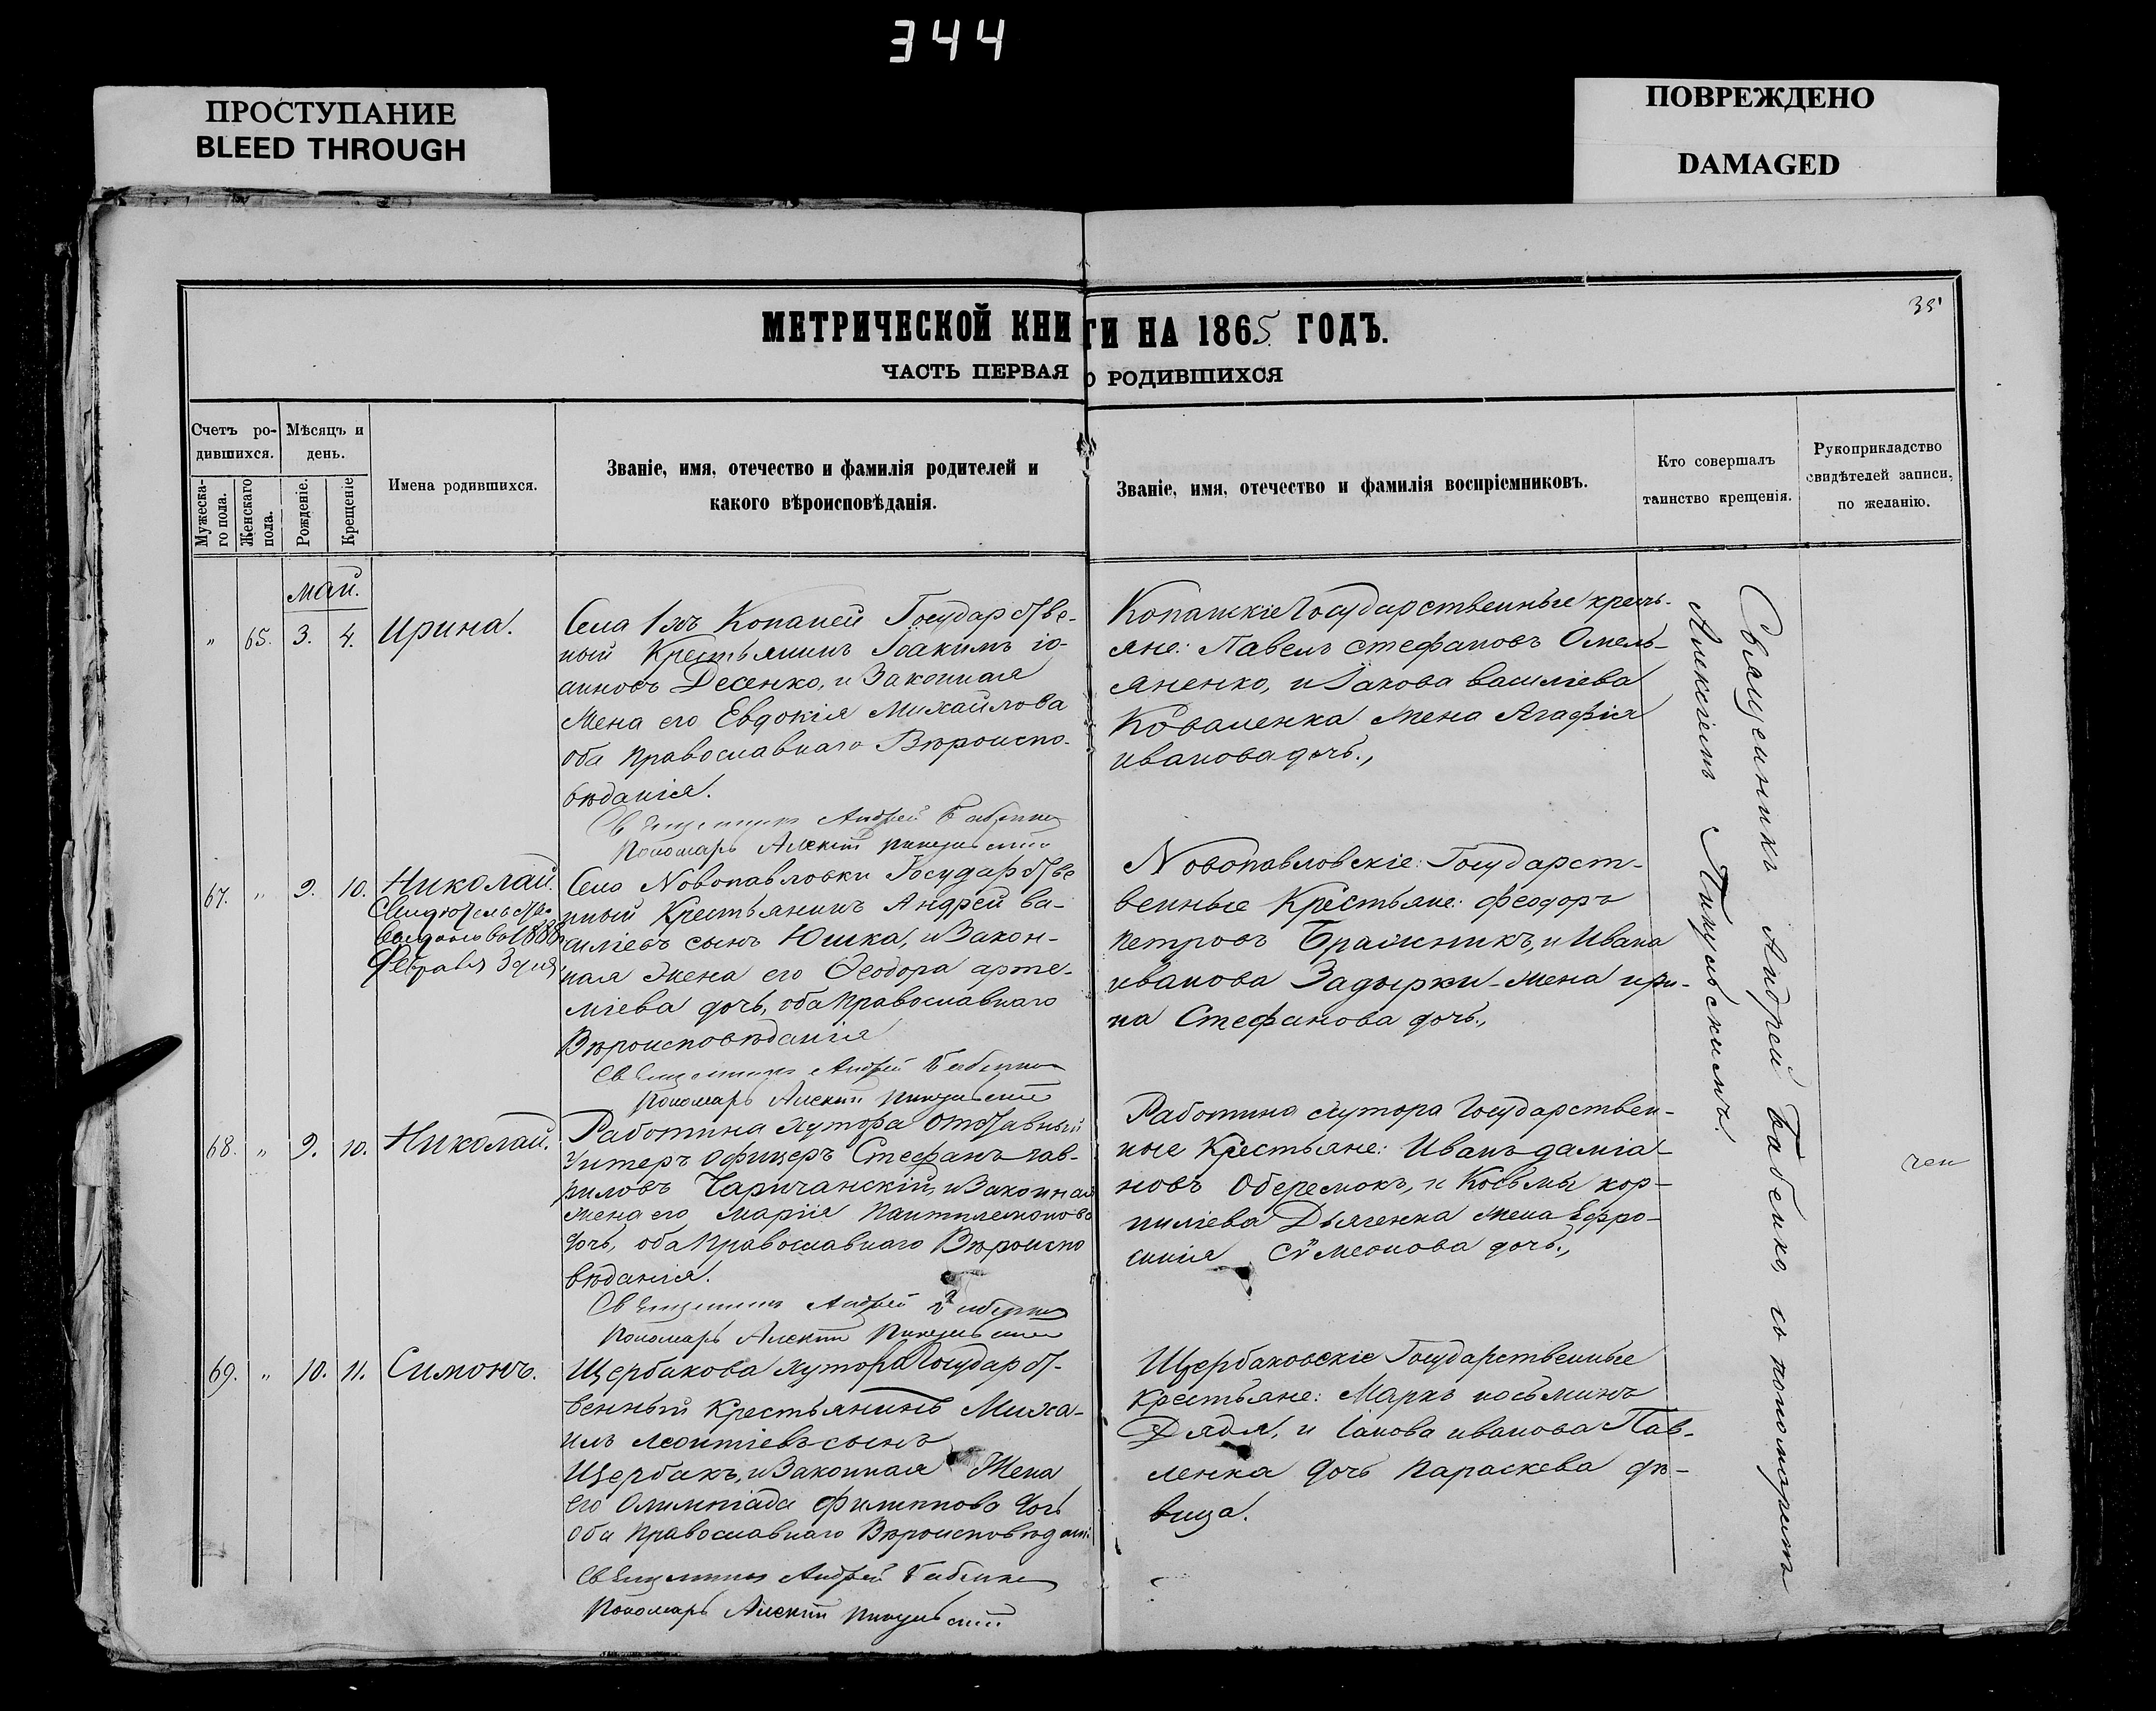 344
ПРОСТУПАНИЕ
BLEED THROUGH
ПОВРЕЖДЕНО
DAMAGED
35
МЕТРИЧЕСКОЙ КНИГИ НА 1865 ГОДЪ.
ЧАСТЬ ПЕРВАЯ О РОДИВШИХСЯ
Счетъ ро-
дившихся.
Мѣсяцъ и
день.
Мужеска-
го пола.
Женскаго
пола.
Рожденіе.
Крещеніе
Имена родившихся.
Званіе, имя, отечество и фамилія родителей и
какого вѣроисповѣданія.
Званіе, имя, отечество и фамилія воспріемниковъ.
Кто совершалъ
таинство крещенія.
Рукоприкладство
свидѣтелей записи,
по желанію.
май.
" 65. 3. 4. Ирина.
Села Копаней Государстве-
ный Крестьянинъ Іоакимъ іо-
анновъ Десенко, и Законная
Жена его Евдокія Михайлова
оба Православнаго Вѣроиспо-
вѣданія.
Священникъ Андрей Бабенко
Пономарь Алексѣй Пикульскій
Копанскіе Государственные кресть-
яне: Павелъ Стефановъ Омель-
яненко, и Іакова Василіева
Коваленка жена Агафія
иванова дочь.,
67. " 9. 10. Николай.
1888
Февраля 3 дня
Село Новопавловки Государстве
нный Крестьянинъ Андрей ва-
силіевъ сынъ Юшка, и Закон-
ная жена его Феодора арте-
міева дочь, оба Православнаго
Вѣроисповѣданія
Священникъ Андрей Бабенко
Пономарь Алексѣй Пикульскій
Новопавловскіе: Государст-
венные Крестьяне: Феодоръ
Петровъ Бражникъ, и Ивана
иванова Задырки жена ири-
на Стефанова дочь.,
68. " 9. 10. Николай.
Работина Хутора Отставный
Унтеръ офицеръ Стефанъ гав-
риловъ Чаричанскій, и Законная
жена его Марія Пантилемонова
дочь, оба Православнаго Вѣроиспо
вѣданія.
Священникъ Андрей Бабенко
Пономарь Алексѣй Пикульскій
Работина хутора Государствен-
ные Крестьяне: Иванъ даміа-
новъ Оберемокъ, и Косьмы кор-
ниліева Дьяченка жена Ефро-
синія Сѵмеонова дочь.,
69. " 10. 11. Симонъ.
Щербакова хутора Государст-
венный Крестьянинъ Миха-
илъ Леонтіевъ сынъ
Щербакъ, и Законная Жена
его Олимпіада филиппова дочь
оба Православнаго Вѣроисповѣдані
Священникъ Андрей Бабенко
Пономарь Алексѣй Пикульскій
Щербаковскіе Государственные
Крестьяне: Маркъ косьминъ
Дядя, и Іакова иванова Пав-
ленка дочь Параскева дѣ-
вица.
Священникъ Андрей Бабенко, съ пономаремъ
Алексіемъ Пикульскимъ.